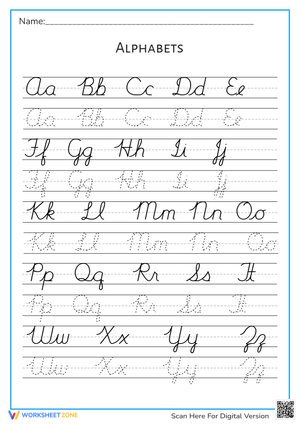 Name:____________________________________________
ALPHABETS
Aa Bb Cc Dd Ee
Aa Bb Cc Dd Ee
Ff Gg Hh Ii Jj
Ff Gg Hh Ii Jj
Kk Ll Mm Nn Oo
Kk Ll Mm Nn Oo
Pp Qq Rr Ss Tt
Pp Qq Rr Ss Tt
Ww Xx Yy Zz
Ww Xx Yy Zz
WORKSHEETZONE
Scan Here For Digital Version